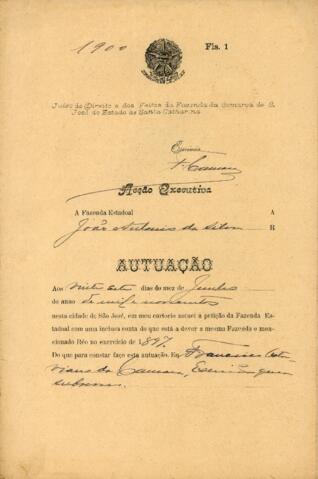 1900 Fls. 1
Juizo de Direito e dos Feitos da Fazenda da Comarca de S.
José do Estado de Santa Catharina
Escrivão
Acção Executiva
A Fazenda Estadoal A
João Antonio da Silva R
AUTUAÇÃO
Aos vinte sete dias do mez de Junho
do anno de mil e novecentos
nesta cidade de São José, em meu cartorio autuei a petição da Fazenda Es-
tadoal com uma inclusa conta do que está a dever a mesma Fazenda o men-
cionado Réo no exercicio de 1897.
Do que para constar faço esta autuação. Eu Francisco
Camara, Escrivão que
subscrevi